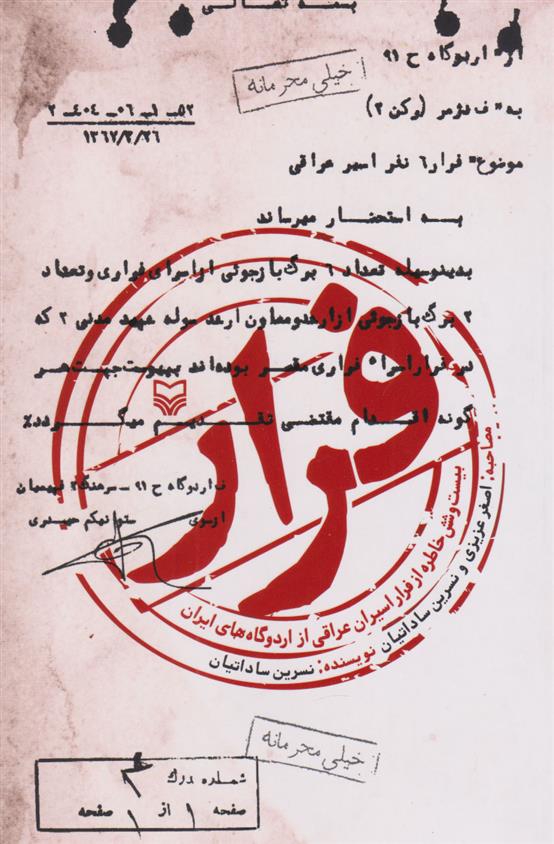 بسمه تعالی
از" اردوگاه ح ۹۱
خیلی محرمانه
به" ف دژمر (رکن ۲)
۵۲ـ ۱ـ ۰۶ـ ۴۰۴ـ ۲
۱۳۶۷/۲/۲۶
موضوع" فرار ۶ نفر اسیر عراقی
به استحضار میرساند
بدینوسیله تعداد ۶ برگ بازجوئی از اسرای فراری و تعداد
۲ برگ بازجوئی از ارشد و معاون ارشد سوله شهید مدنی ۲ که
در فرار اسراء فراری مقصر بوده‌اند بپیوست جهت هر
گونه اقدام مقتضی تقدیم میگردد٪
فرار
ف اردوگاه ح ۹۱ ـ سرهنگ ۲ فهیمیان
از سوی ستوانیکم حیدری
مصاحبه: اصغر عزیزی و نسرین ساداتیان
بیست‌وشش خاطره از فرار اسیران عراقی از اردوگاه‌های ایران
نویسنده: نسرین ساداتیان
خیلی محرمانه
شماره مدرک ۲
صفحه ۱ از ۱ صفحه